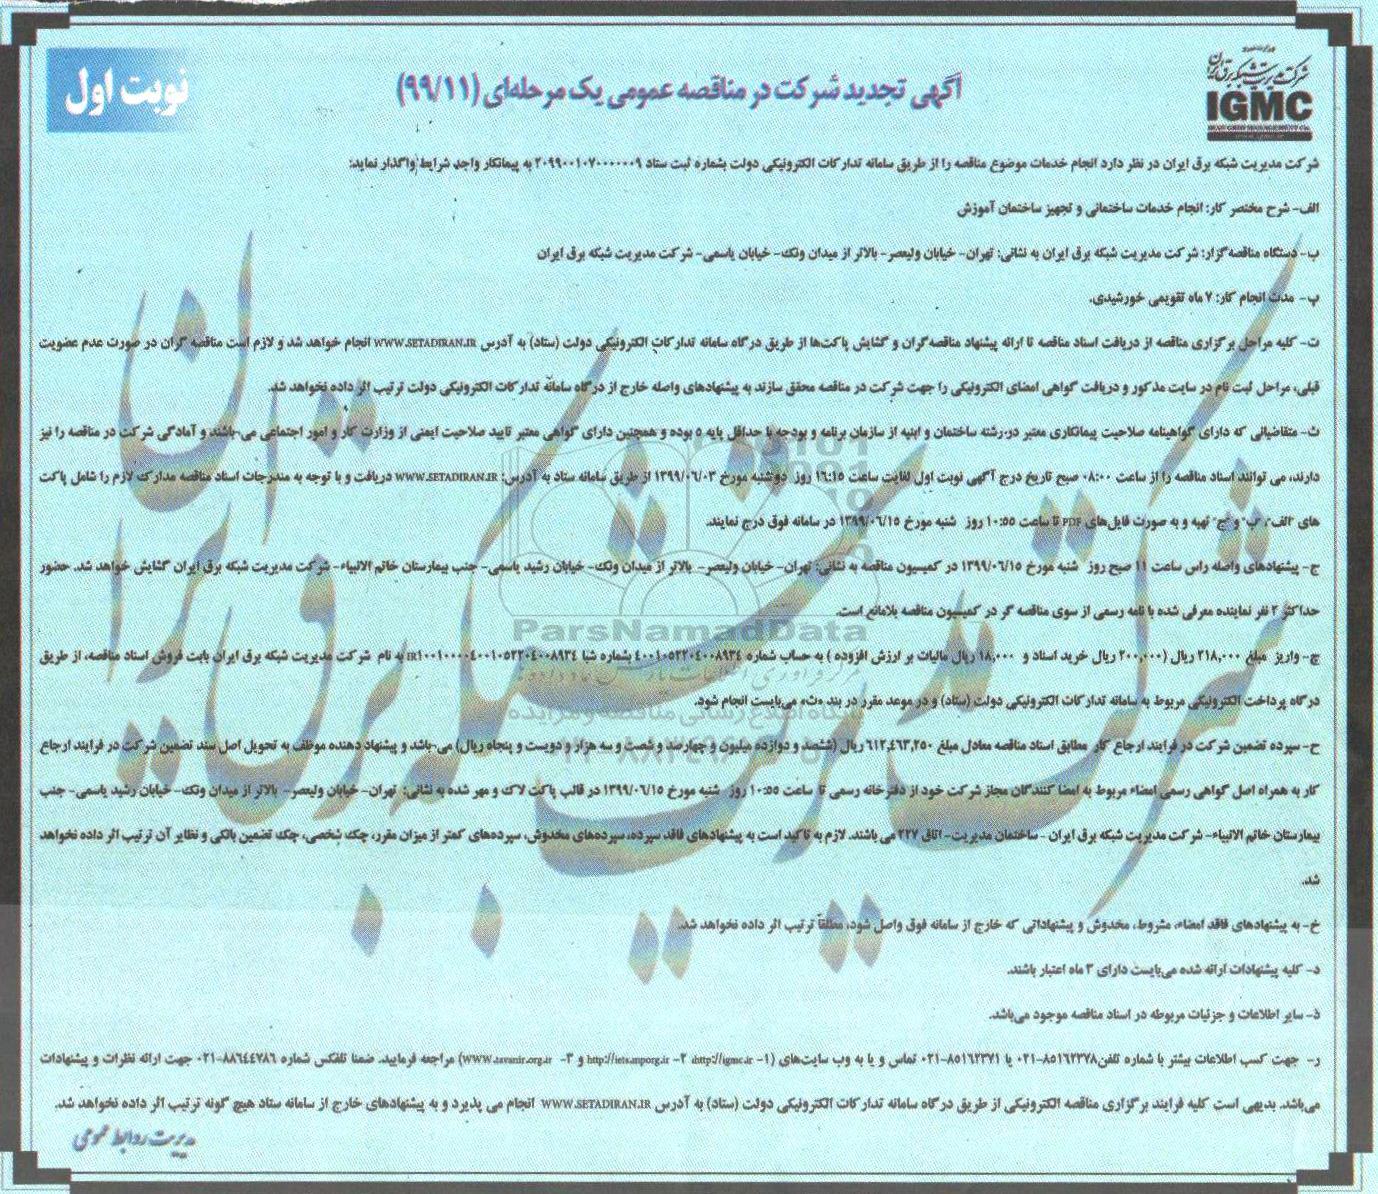 وزارت نیرو
شرکت مدیریت شبکه برق ایران
IGMC
IRAN GRID MANAGEMENT Co.
نوبت اول
آگهی تجدید شرکت در مناقصه عمومی یک مرحله‌ای (۹۹/۱۱)
شرکت مدیریت شبکه برق ایران در نظر دارد انجام خدمات موضوع مناقصه را از طریق سامانه تدارکات الکترونیکی دولت بشماره ثبت ستاد ۲۰۹۹۰۰۱۰۷۰۰۰۰۰۰۹ به پیمانکار واجد شرایط واگذار نماید:
الف- شرح مختصر کار: انجام خدمات ساختمانی و تجهیز ساختمان آموزش
ب- دستگاه مناقصه‌گزار: شرکت مدیریت شبکه برق ایران به نشانی: تهران- خیابان ولیعصر- بالاتر از میدان ونک- خیابان یاسمی- شرکت مدیریت شبکه برق ایران
پ- مدت انجام کار: ۷ ماه تقویمی خورشیدی.
ت- کلیه مراحل برگزاری مناقصه از دریافت اسناد مناقصه تا ارائه پیشنهاد مناقصه‌گران و گشایش پاکت‌ها از طریق درگاه سامانه تدارکات الکترونیکی دولت (ستاد) به آدرس WWW.SETADIRAN.IR انجام خواهد شد و لازم است مناقصه گران در صورت عدم عضویت
قبلی، مراحل ثبت نام در سایت مذکور و دریافت گواهی امضای الکترونیکی را جهت شرکت در مناقصه محقق سازند به پیشنهادهای واصله خارج از درگاه سامانه تدارکات الکترونیکی دولت ترتیب اثر داده نخواهد شد.
ث- متقاضیانی که دارای گواهینامه صلاحیت پیمانکاری معتبر در رشته ساختمان و ابنیه از سازمان برنامه و بودجه با حداقل پایه ۵ بوده و همچنین دارای گواهی معتبر تایید صلاحیت ایمنی از وزارت کار و امور اجتماعی می‌باشند و آمادگی شرکت در مناقصه را نیز
دارند، می توانند اسناد مناقصه را از ساعت ۰۸:۰۰ صبح تاریخ درج آگهی نوبت اول لغایت ساعت ۱۶:۱۵ روز دوشنبه مورخ ۱۳۹۹/۰۶/۰۳ از طریق سامانه ستاد به آدرس: WWW.SETADIRAN.IR دریافت و با توجه به مندرجات اسناد مناقصه مدارک لازم را شامل پاکت
های "الف"، "ب" و "ج" تهیه و به صورت فایل‌های PDF تا ساعت ۱۰:۵۵ روز شنبه مورخ ۱۳۹۹/۰۶/۱۵ در سامانه فوق درج نمایند.
ج- پیشنهادهای واصله راس ساعت ۱۱ صبح روز شنبه مورخ ۱۳۹۹/۰۶/۱۵ در کمیسیون مناقصه به نشانی: تهران- خیابان ولیعصر- بالاتر از میدان ونک- خیابان رشید یاسمی- جنب بیمارستان خاتم الانبیاء- شرکت مدیریت شبکه برق ایران گشایش خواهد شد. حضور
حداکثر ۲ نفر نماینده معرفی شده با نامه رسمی از سوی مناقصه گر در کمیسیون مناقصه بلامانع است.
چ- واریز مبلغ ۲۱۸,۰۰۰ ریال (۲۰۰,۰۰۰ ریال خرید اسناد و ۱۸,۰۰۰ ریال مالیات بر ارزش افزوده ) به حساب شماره ۴۰۰۱۰۵۲۲۰۴۰۰۸۹۳۴ بشماره شبا IR۱۰۰۱۰۰۰۰۴۰۰۱۰۵۲۲۰۴۰۰۸۹۳۴ به نام شرکت مدیریت شبکه برق ایران بابت فروش اسناد مناقصه، از طریق
درگاه پرداخت الکترونیکی مربوط به سامانه تدارکات الکترونیکی دولت (ستاد) و در موعد مقرر در بند «ث» می‌بایست انجام شود.
ح- سپرده تضمین شرکت در فرایند ارجاع کار مطابق اسناد مناقصه معادل مبلغ ۶۱۲,۴۶۳,۲۵۰ ریال (ششصد و دوازده میلیون و چهارصد و شصت و سه هزار و دویست و پنجاه ریال) می‌باشد و پیشنهاد دهنده موظف به تحویل اصل سند تضمین شرکت در فرایند ارجاع
کار به همراه اصل گواهی رسمی امضاء مربوط به امضا کنندگان مجاز شرکت خود از دفترخانه رسمی تا ساعت ۱۰:۵۵ روز شنبه مورخ ۱۳۹۹/۰۶/۱۵ در قالب پاکت لاک و مهر شده به نشانی: تهران- خیابان ولیعصر- بالاتر از میدان ونک- خیابان رشید یاسمی- جنب
بیمارستان خاتم الانبیاء- شرکت مدیریت شبکه برق ایران - ساختمان مدیریت- اتاق ۲۲۷ می باشند. لازم به تاکید است به پیشنهادهای فاقد سپرده، سپرده‌های مخدوش، سپرده‌های کمتر از میزان مقرر، چک شخصی، چک تضمین بانکی و نظایر آن ترتیب اثر داده نخواهد
شد.
خ- به پیشنهادهای فاقد امضاء، مشروط، مخدوش و پیشنهاداتی که خارج از سامانه فوق واصل شود، مطلقاً ترتیب اثر داده نخواهد شد.
د- کلیه پیشنهادات ارائه شده می‌بایست دارای ۳ ماه اعتبار باشند.
ذ- سایر اطلاعات و جزئیات مربوطه در اسناد مناقصه موجود می‌باشد.
ر- جهت کسب اطلاعات بیشتر با شماره تلفن ۸۵۱۶۲۳۷۸-۰۲۱ یا ۸۵۱۶۲۳۷۱-۰۲۱ تماس و یا به وب سایت‌های (۱- http://igmc.ir، ۲- http://iets.mporg.ir و ۳- www.tavanir.org.ir) مراجعه فرمایید. ضمنا تلفکس شماره ۸۸۶۴۴۷۸۶-۰۲۱ جهت ارائه نظرات و پیشنهادات
می‌باشد. بدیهی است کلیه فرایند برگزاری مناقصه الکترونیکی از طریق درگاه سامانه تدارکات الکترونیکی دولت (ستاد) به آدرس WWW.SETADIRAN.IR انجام می پذیرد و به پیشنهادهای خارج از سامانه ستاد هیچ گونه ترتیب اثر داده نخواهد شد.
مدیریت روابط عمومی
شرکت مدیریت شبکه برق ایران
ParsNamadData